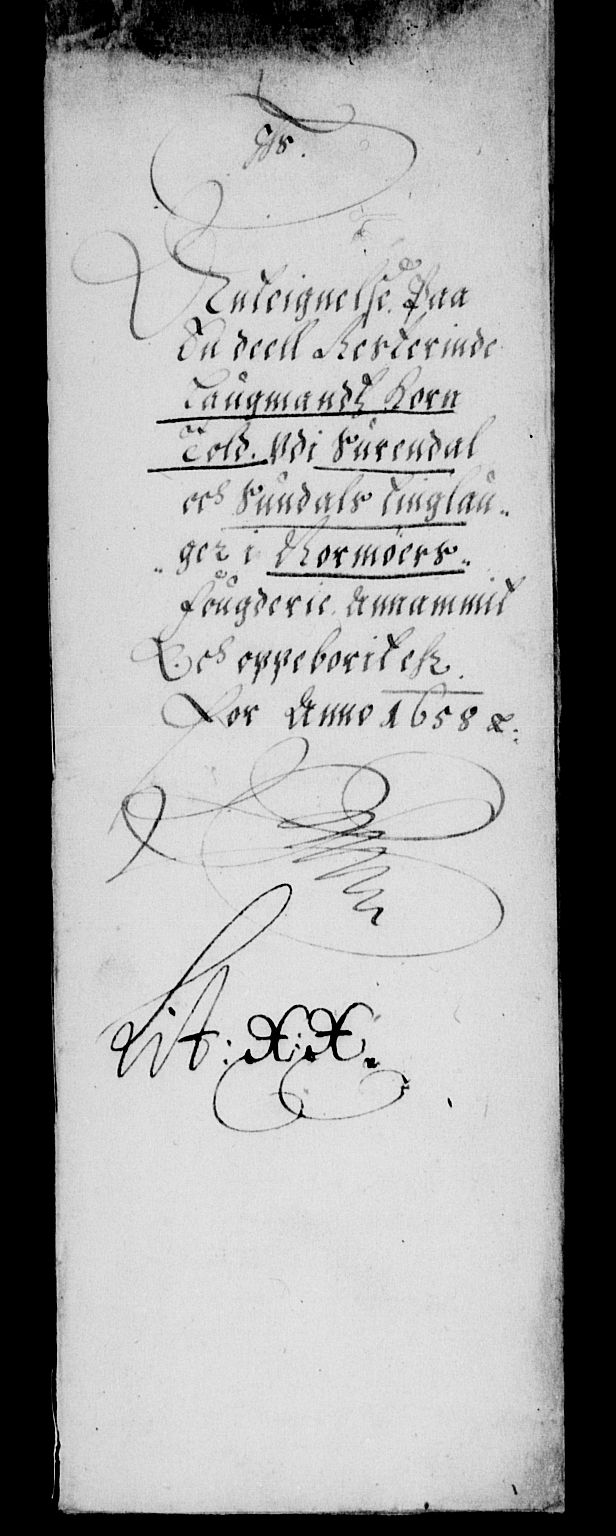 Anteignelse Paa
En deell Resterinde
Laugmandz Korn
Told. Vdi Surendal
och Sundals tinglau„
„ger i Normøers„
fougderie Annammit
Och oppeborit
For Anno 1658 &:
Lit: XX.